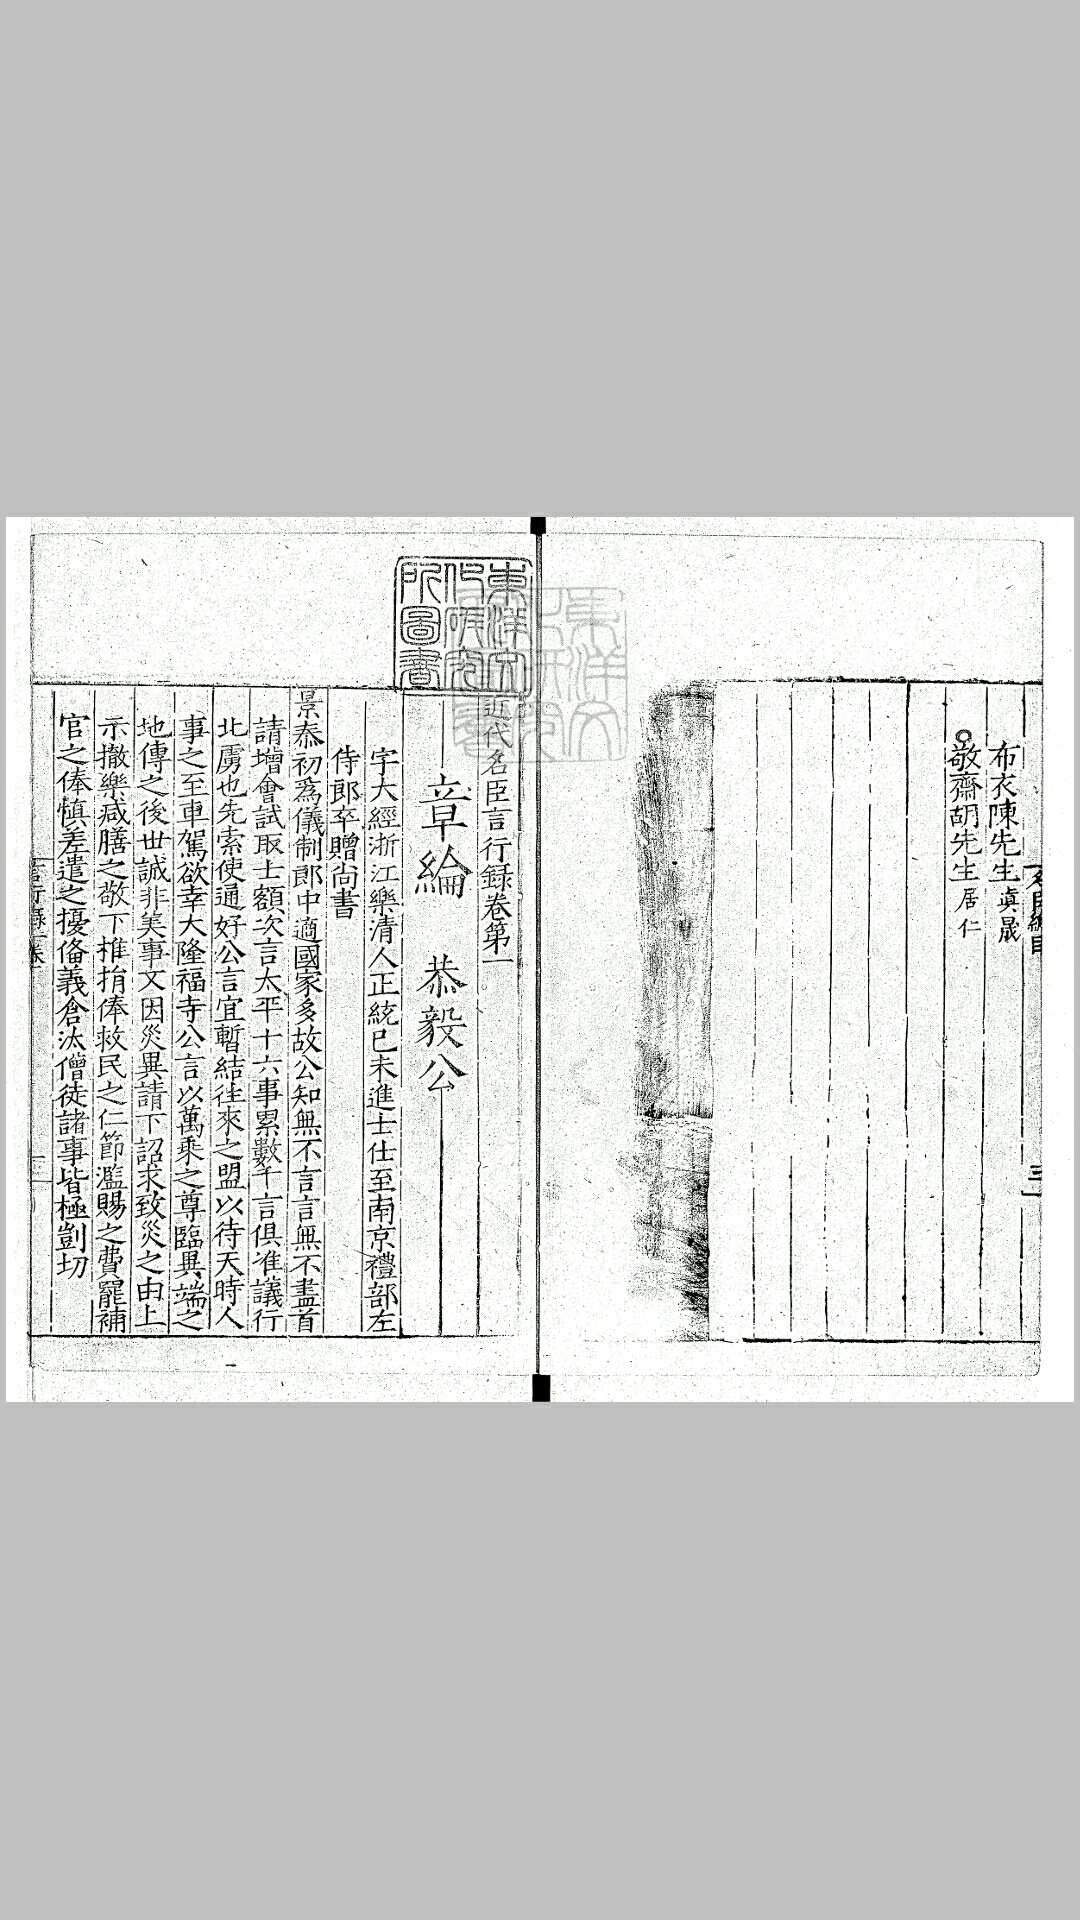 布衣陳先生真晟
敬齋胡先生居仁
三
東洋文
化研究
所圖書
近代名臣言行録卷第一
章綸　恭毅公
字大經浙江樂清人正統已未進士仕至南京禮部左
侍郎卒贈尚書
景泰初爲儀制郎中適國家多故公知無不言言無不盡首
請增會試取士額次言太平十六事累數千言俱准議行
北虜也先索使通好公言宜暫結徃來之盟以待天時人
事之至車駕欲幸大隆福寺公言以萬乘之尊臨異端之
地傳之後世誠非美事文因災異請下詔求致災之由上
示撤樂减膳之敬下推捐俸救民之仁節濫賜之費罷補
官之俸慎差遣之擾俻義倉汰僧徒諸事皆極剴切